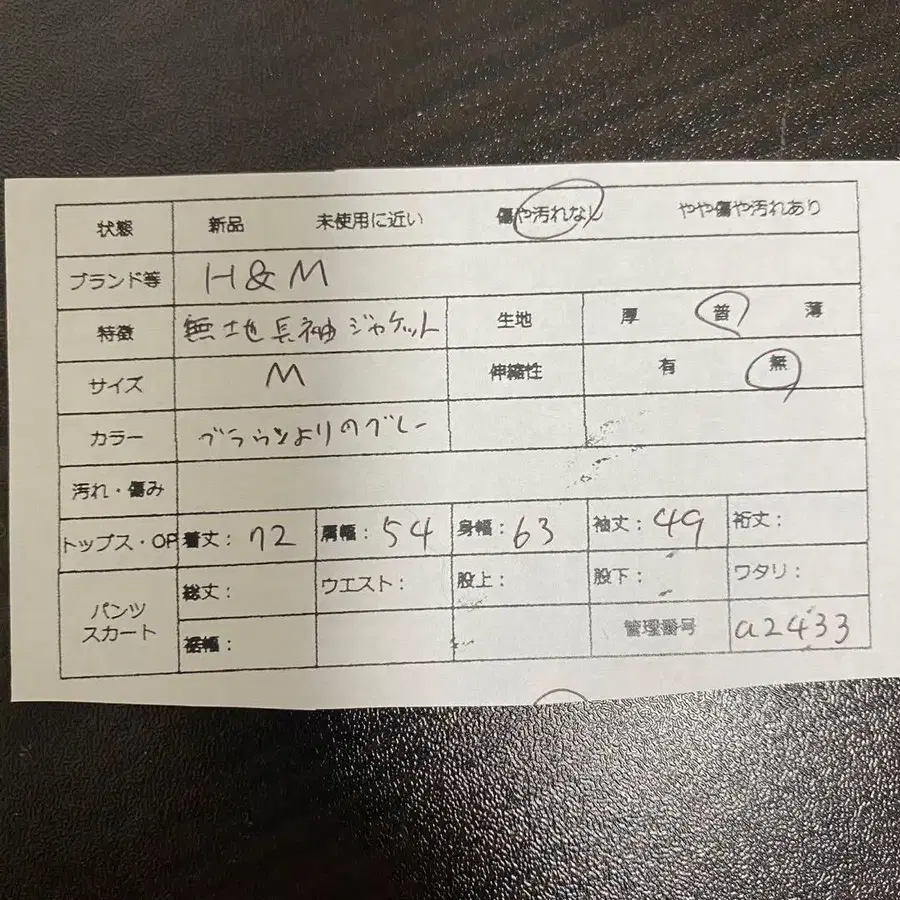 状態 新品 未使用に近い 傷や汚れなし やや傷や汚れあり
ブランド等 H&M
特徴 無地長袖ジャケット 生地 厚 普 薄
サイズ M 伸縮性 有 無
カラー ブラウンよりのグレー
汚れ・傷み
トップス・OP 着丈: 72 肩幅: 54 身幅: 63 袖丈: 49 裄丈:
パンツ スカート 総丈: ウエスト: 股上: 股下: ワタリ:
裾幅: 管理番号 a2433